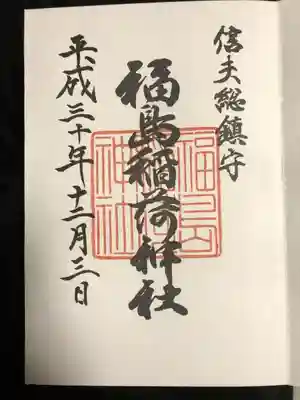 信夫総鎮守
福島稲荷神社
福島
神社
平成三十年十二月三日